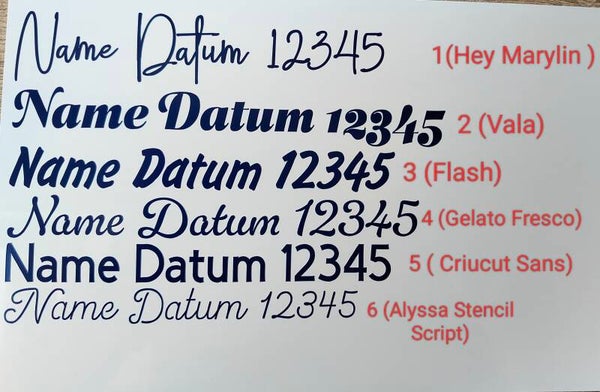 Name Datum 12345 1(Hey Marylin )
Name Datum 12345 2 (Vala)
Name Datum 12345 3 (Flash)
Name Datum 12345 4 (Gelato Fresco)
Name Datum 12345 5 ( Criucut Sans)
Name Datum 12345 6 (Alyssa Stencil
Script)